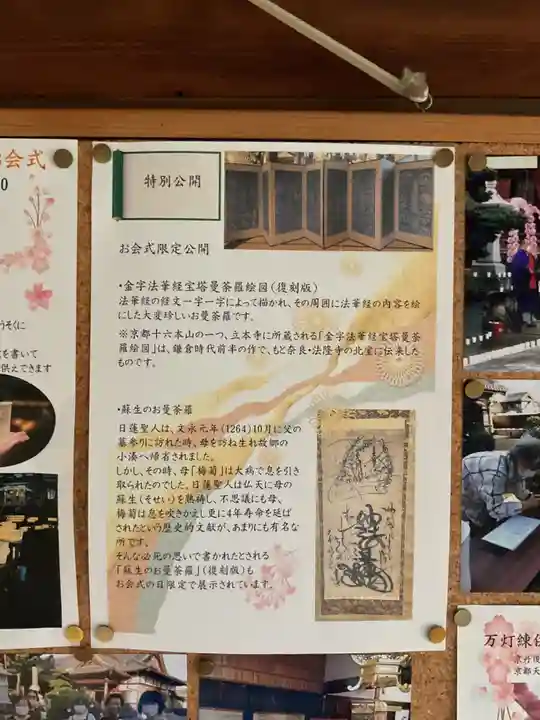 お会式
0
うそくに
を書いて
供えできます
特別公開
お会式限定公開
・金字法華経宝塔曼荼羅絵図(復刻版)
法華経の経文一字一字によって描かれ、その周囲に法華経の内容を絵
にした大変珍しいお曼荼羅です。
※京都十六本山の一つ、立本寺に所蔵される「金字法華経宝塔曼荼
羅絵図」は、鎌倉時代前半の作で、もと奈良・法隆寺の北室に伝来した
ものです。
・蘇生のお曼荼羅
日蓮聖人は、文永元年(1264)10月に父の
墓参りに訪れた時、母を訪ね生れ故郷の
小湊へ帰省されました。
しかし、その時、母「梅菊」は大病で息を引き
取られたのでした。日蓮聖人は仏天に母の
蘇生(そせい)を熱祷し、不思議にも母、
梅菊は息を吹きかえし更に4年寿命を延ば
されたという歴史的文献が、あまりにも有名な
所です。
そんな必死の思いで書かれたとされる
「蘇生のお曼荼羅」(復刻版)も
お会式の日限定で展示されています。
万灯練
京丹後
京都天